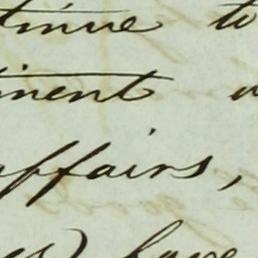 tinue to
tinent
affairs,
have